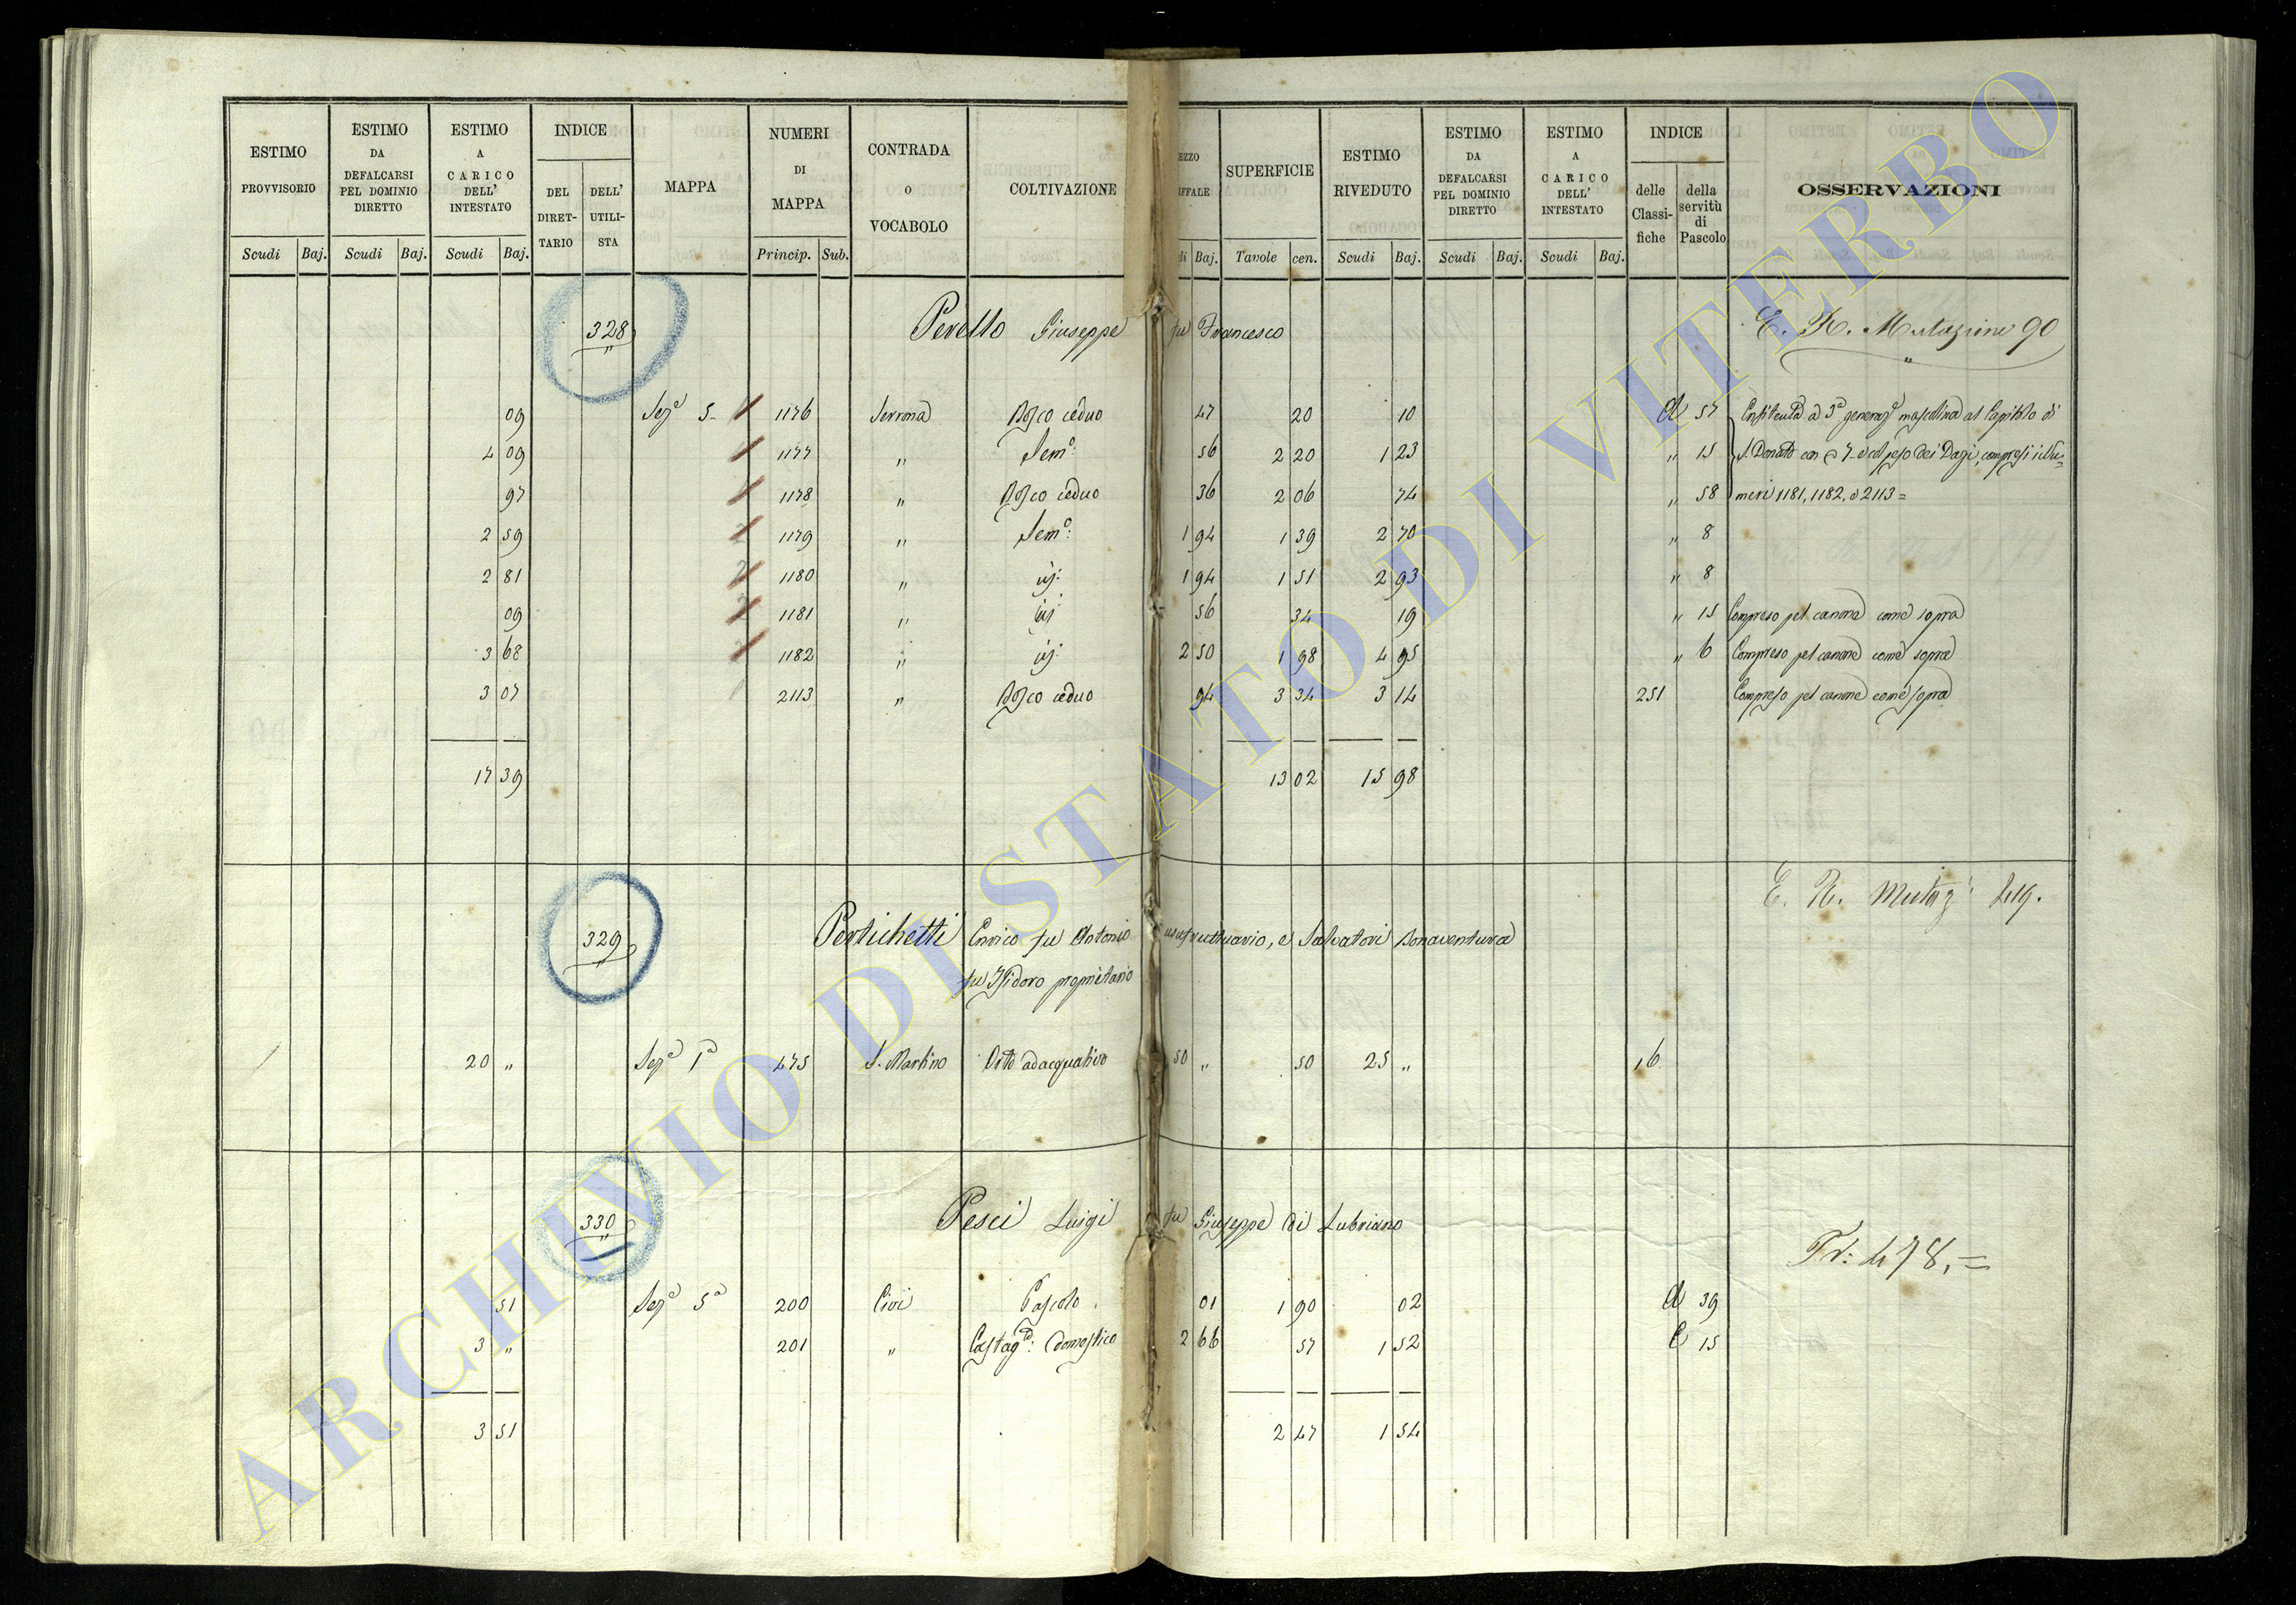 ESTIMO PROVVISORIO Scudi Baj.
ESTIMO DA DEFALCARSI PEL DOMINIO DIRETTO Scudi Baj.
ESTIMO A CARICO DELL' INTESTATO Scudi Baj.
INDICE DEL DIRET-TARIO DELL' UTILI-STA
MAPPA
NUMERI DI MAPPA Princip. Sub.
CONTRADA O VOCABOLO
COLTIVAZIONE
EZZO IFFALE di Baj.
SUPERFICIE Tavole cen.
ESTIMO RIVEDUTO Scudi Baj.
ESTIMO DA DEFALCARSI PEL DOMINIO DIRETTO Scudi Baj.
ESTIMO A CARICO DELL' INTESTATO Scudi Baj.
INDICE delle Classi-fiche della servitù di Pascolo
OSSERVAZIONI
328 Perello Giuseppe fu Francesco E. N. Mutazione 90
09 Sez.e 5 1176 Serrona Bosco ceduo 47 20 10 A 57 Enfiteuta a 3a generaze mascolina al Capitolo di
4 09 1177 " Semo: 56 2 20 1 23 " 15 S. Donato con
97 1178 " Bosco ceduo 36 2 06 74 " 58 meri 1181, 1182, e 2113 =
2 59 1179 " Semo: 1 94 1 39 2 70 " 8
2 81 1180 " id: 1 94 1 51 2 93 " 8
09 1181 " id: 56 34 19 " 15 Compreso pel canone come sopra
3 68 1182 " id: 2 50 1 98 4 95 " 6 Compreso pel canone come sopra
3 07 2113 " Bosco ceduo 94 3 34 3 14 251 Compreso pel canone come sopra
17 39 13 02 15 98
329 Pertichetti Enrico fu Antonio usufruttuario, e Salvatori Bonaventura E. N. Mutaz: 419.
fu Isidoro proprietario
20 " Sez.e 1a 475 S. Martino Orto adacquativo 50 " 50 25 " 16
330 Pesci Luigi fu Giuseppe di Lubriano
Tr: 478, =
51 Sez.e 5a 200 Civi Pascolo 01 1 90 02 A 39
3 " 201 " Castago: domestico 2 66 57 1 52 C 15
3 51 2 47 1 54
ARCHIVIO DI STATO DI VITERBO